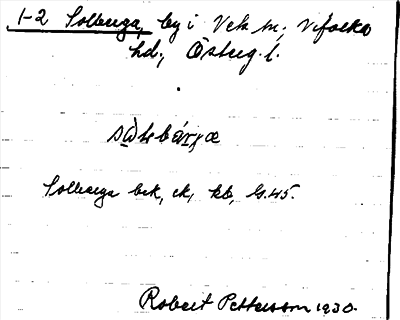 1-2 Solberga, by i Vck sn; Vifolka
hd., Österg. l.
Solberga bck, ck, kb, G.45.
Robert Pettersson 1930.